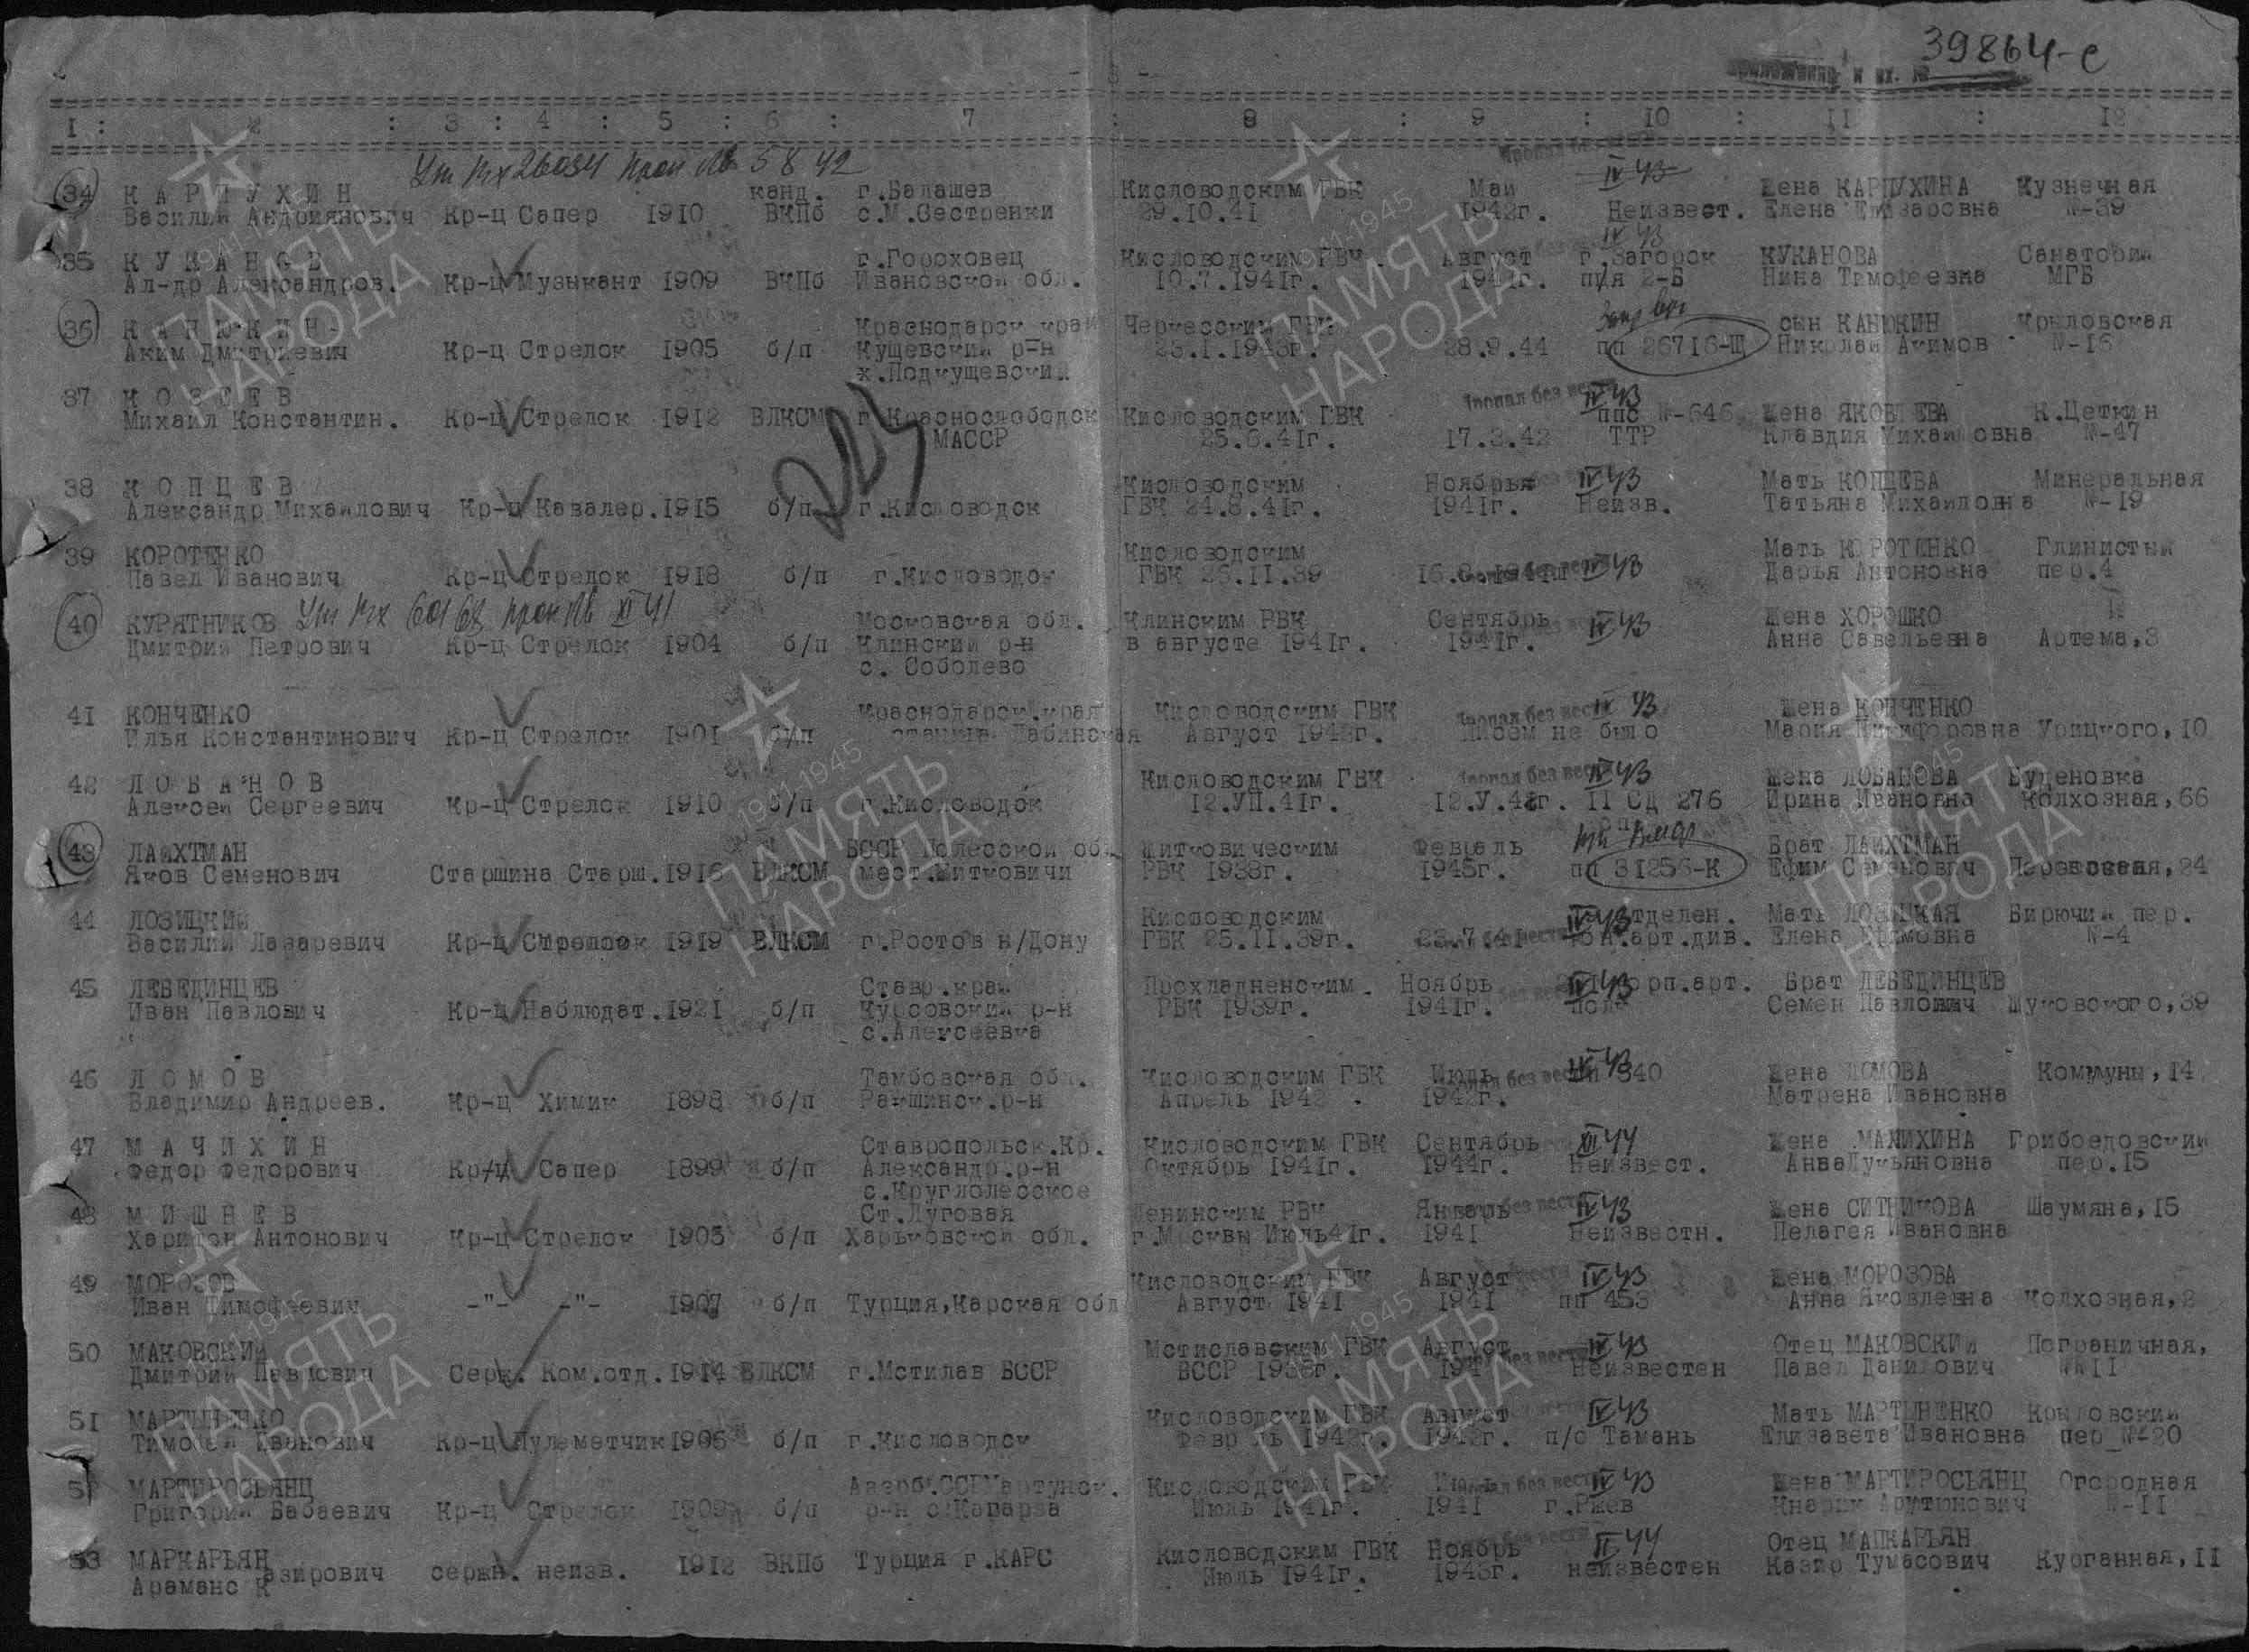 39864-с
- 3 -
приложение к вх. №
1 : 2 : 3 : 4 : 5 : 6 : 7 : 8 : 9 : 10 : 11 : 12
34 К А Р П У Х И Н канд. г.Балашев Кисловодским ГВК Май IV 43 Жена КАРПУХИНА Кузнечная
Василий Андриянович Кр-ц Сапер 1910 ВКПб с.М.Сестренки 29.10.41 1942г. Неизвест. Елена Елизаровна №-39
35 К У К А Н О В г.Гороховец Кисловодским ГВК. Август IV 43 г.Загорск КУКАНОВА Санаторий
Ал-др Александров. Кр-ц Музыкант 1909 ВКПб Ивановской обл. 10.7.1941г. 1941г. п/я 2-Б Нина Тимофеевна МГБ
36 К А Н Ю К И Н Краснодарск край Черкесским ГВК сын КАНЮКИН Крыловская
Аким Дмитриевич Кр-ц Стрелок 1905 б/п Кущевский р-н 23.1.1943г. 28.9.44 пп 26716-Щ Николай Акимов №-16
х.Подкущевский
37 К О З Е Е В Пропал без вести IV 43
Михаил Константин. Кр-ц Стрелок 1912 ВЛКСМ г.Краснослободск Кисловодским ГВК ппс №-646 Жена ЯКОВЛЕВА К.Цеткин
МАССР 25.6.41г. 17.3.42 ТТР Клавдия Михайловна №-47
38 К О П Ц Е В Кисловодским Ноябрья IV 43 Мать КОПЦЕВА Минеральная
Александр Михайлович Кр-ц Кавалер. 1915 б/п г.Кисловодск ГВК 24.8.41г. 1941г. Неизв. Татьяна Михайловна №-19
39 КОРОТЕНКО Кисловодским Мать КОРОТЕНКО Глинистый
Павел Иванович Кр-ц Стрелок 1918 б/п г.Кисловодск ГВК 26.11.39 IV 43 Дарья Антоновна пер.4
40 КУРЯТНИКОВ Московская обл. Клинским РВК Сентябрь IV 43 Жена ХОРОШКО
Дмитрий Петрович Кр-ц Стрелок 1904 б/п Клинский р-н в августе 1941г. 1941г. Анна Савельевна Артема,3
с. Соболево
41 КОНЧЕНКО Краснодарск.края Кисловодским ГВК Пропал без вести IV 43 Жена КОНЧЕНКО
Илья Константинович Кр-ц Стрелок 1901 б/п станица Лабинская Август 1942г. Писем не было Мария Никифоровна Урицкого,10
42 Л О Б А Н О В Кисловодским ГВК Пропал без вести IV 43 Жена ЛОБАНОВА Буденовка
Алексей Сергеевич Кр-ц Стрелок 1910 б/п г.Кисловодск 12.УП.41г. 12.У.42г. 11 СД 276 Ирина Ивановна Колхозная,66
43 ЛАЙХТМАН БССР Полесской обл. Житковическим Февраль Брат ЛАЙХТМАН
Яков Семенович Старшина Старш. 1916 ВЛКСМ мест.Житковичи РВК 1938г. 1945г. пп 31256-К Ефим Семенович 24
44 ЛОЗИЦКИЙ Кисловодским IV 43 отделен. Мать ЛОЗИЦКАЯ Бирючий пер.
Василий Лазаревич Кр-ц Стрелок 1919 ВЛКСМ г.Ростов н/Дону ГВК 25.11.39г. 23.7.41 кон.арт.див. Елена Ефимовна №-4
45 ЛЕБЕДИНЦЕВ Ставр.край Прохладненским. Ноябрь IV 43 корп.арт. Брат ЛЕБЕДИНЦЕВ
Иван Павлович Кр-ц Наблюдат. 1921 б/п Курсовский р-н РВК 1939г. 1941г. полк Семен Павлович Жуковского,39
с.Алексеевка
46 Л О М О В Тамбовская обл. Кисловодским ГВК Июль IV 43 340 Жена ЛОМОВА Коммуны,14
Владимир Андреев. Кр-ц Химик 1898 б/п Ракшинск.р-н Апрель 1942 . 1942г. Матрена Ивановна
47 М А Ч И Х И Н Ставропольск.Кр. Кисловодским ГВК Сентябрь XII 44 Жена МАЧИХИНА Грибоедовский
Федор Федорович Кр-ц Сапер 1899 б/п Александр.р-н Октябрь 1941г. 1944г. Неизвест. Анна Лукьяновна пер.15
с.Круглолесское
48 М И Ш Н Е В Ст.Луговая Ленинским РВК Январь IV 43 Жена СИТНИКОВА Шаумяна,15
Харитон Антонович Кр-ц Стрелок 1905 б/п Харьковской обл. г.Москвы Июль41г. 1941 Неизвестн. Пелагея Ивановна
49 МОРОЗОВ Кисловодским ГВК Август IV 43 Жена МОРОЗОВА
Иван Тимофеевич -"- -"- 1907 б/п Турция,Карская обл Август 1941 1941 пп 453 Анна Яковлевна Колхозная,2
50 МАКОВСКИЙ Мстиславским ГВК Август IV 43 Отец МАКОВСКИЙ Пограничная,
Дмитрий Павлович Серж. Ком.отд. 1914 ВЛКСМ г.Мстилав БССР БССР 1936г. 194 Неизвестен Павел Данилович №11
51 МАРТЫНЕНКО Кисловодским ГВК Август IV 43 Мать МАРТЫНЕНКО Крыловский
Тимофей Иванович Кр-ц Пулеметчик 1906 б/п г.Кисловодск Февраль 1942г. 1942г. п/о Тамань Елизавета Ивановна пер №-20
52 МАРТИРОСЬЯНЦ Азерб.ССР Мартунск. Кисловодским ГВК Пропал без вести IV 43 Жена МАРТИРОСЬЯНЦ Огородная
Григорий Бабаевич Кр-ц Стрелок 1909 б/п р-н с.Кагарза Июль 1941г. 1941 г.Ржев Кнарик Арутюнович №-11
53 МАРКАРЬЯН Кисловодским ГВК Ноябрь II 44 Отец МАПКАРЬЯН
Араманс Казирович сержн. неизв. 1912 ВКПб Турция г.КАРС Июль 1941г. 1943г. неизвестен Казир Тумасович Курганная,11
ПАМЯТЬ НАРОДА
1941-1945